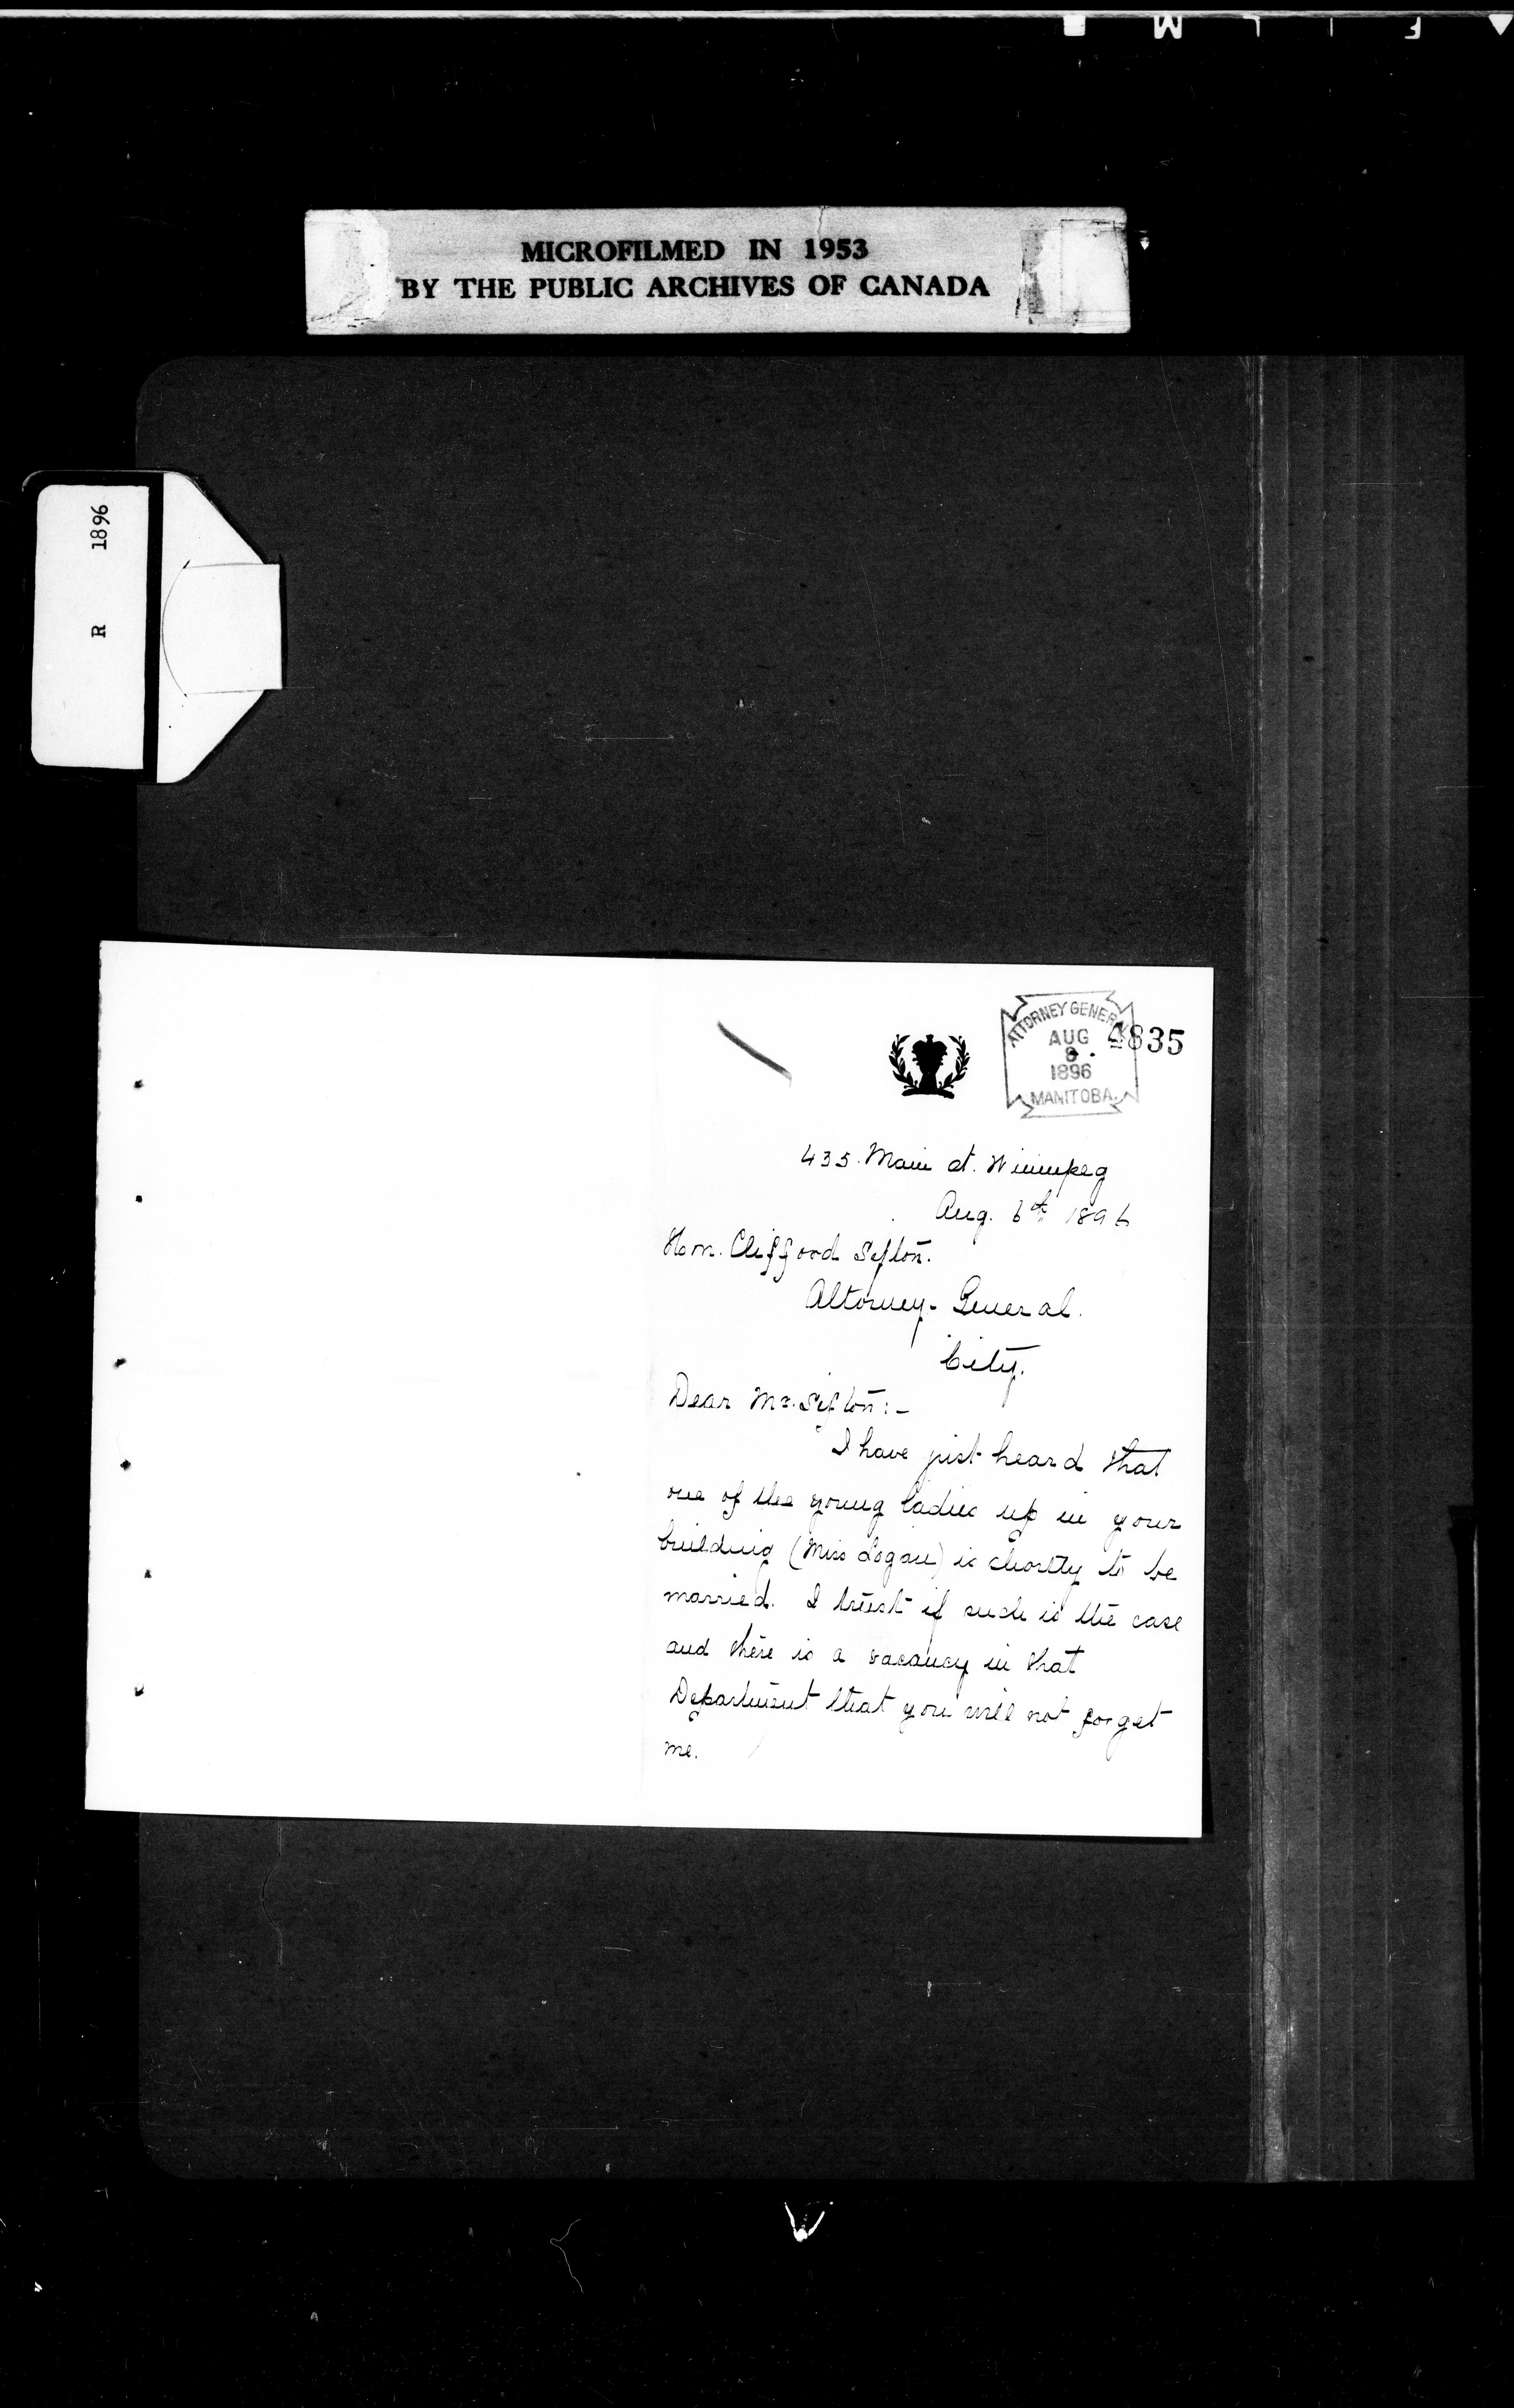 F I L M
MICROFILMED IN 1953
BY THE PUBLIC ARCHIVES OF CANADA
R 1896
ATTORNEY GENERAL
AUG
8
1896
MANITOBA.
4835
435. Main st. Winnipeg
Aug. 6th 1896
Hon. Clifford Sifton.
Attorney-General.
City.
Dear Mr. Sifton:-
I have just heard that
one of the young ladies up in your
building (Miss Logan) is shortly to be
married. I trust if such is the case
and there is a vacancy in that
Department that you will not forget
me.